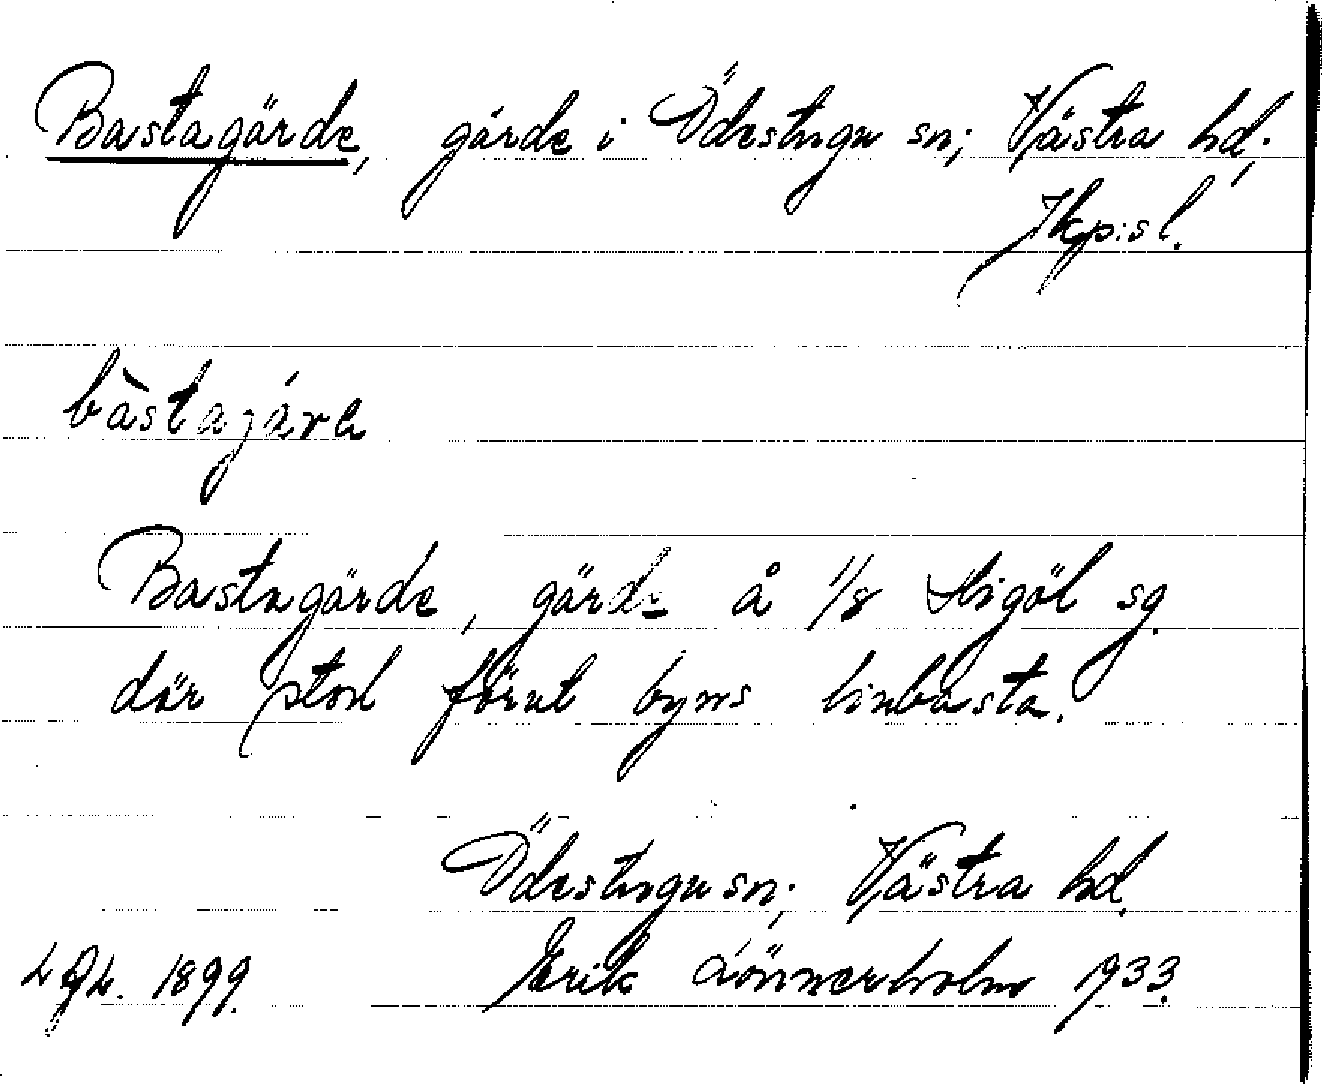 Bastagärde, gärde i Ödestugu sn; Västra hd;
Jkp:s l.
bàstajára
Bastagärde, gärde å 1/8 Stigöl sg.
där stod förut byns linbasta.
Ödestugu sn; Västra hd.
1899. Erik Lönnerholm 1933.